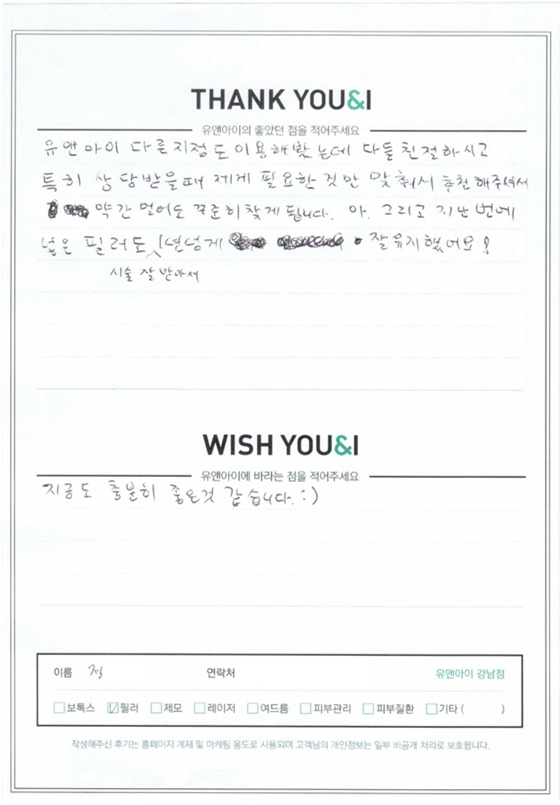 THANK YOU&I
유앤아이의 좋았던 점을 적어주세요
유앤아이 다른지점도 이용해봤는데 다들친절하시고
특히 상담받을때 제게 필요한것만 맞춰서 추천해주셔서
약간 멀어도 꾸준히찾게 됩니다. 아. 그리고 지난번에
넣은 필러도 1년넘게 잘유지했어요!
시술 잘 받아서
WISH YOU&I
유앤아이에 바라는 점을 적어주세요
지금도 충분히 좋은것 같습니다. :)
이름 정 연락처 유앤아이 강남점
보톡스 필러 제모 레이저 여드름 피부관리 피부질환 기타 ( )
작성해주신 후기는 홈페이지 게재 및 마케팅 용도로 사용되며 고객님의 개인정보는 일부 비공개 처리로 보호됩니다.